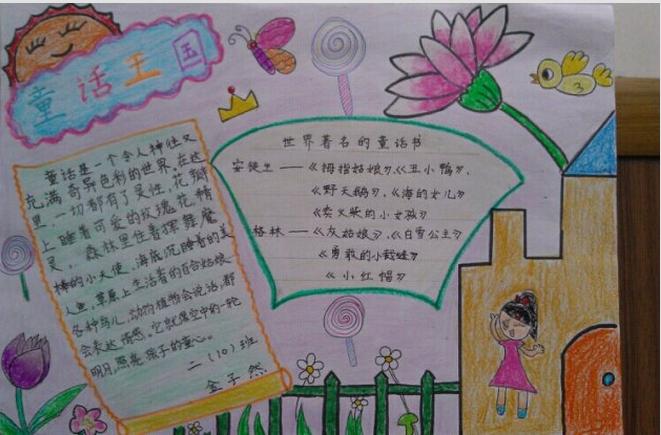 童话王国
童话是一个令人神往又
充满奇异色彩的世界,在这
里一切都有了灵性,花瓣
上睡着可爱的玫瑰花精
灵,森林里住着挥舞魔
棒的小天使,海底沉睡着的美
人鱼,草原上生活着的百合姑娘
各种鸟儿,动物植物会说话,都
会表达情感。它就像空中的一轮
明月,照亮孩子的童心。
二(10)班
金子然
世界著名的童话书
安徒生——《拇指姑娘》、《丑小鸭》、
《野天鹅》、《海的女儿》
《卖火柴的小女孩》
格林——《灰姑娘》、《白雪公主》
《勇敢的小裁缝》
《小红帽》
3